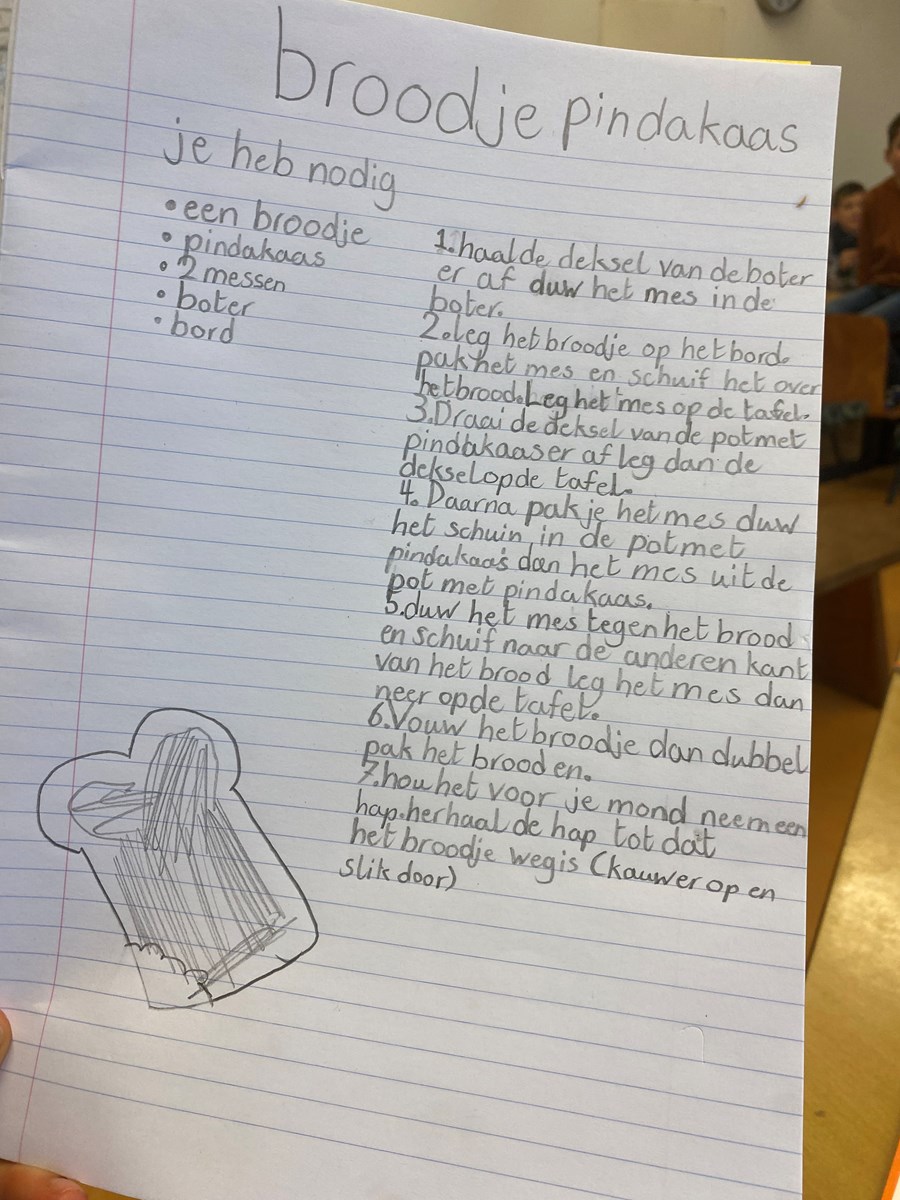 broodje pindakaas
je heb nodig
• een broodje
• pindakaas
• 2 messen
• boter
• bord
1. haal de deksel van de boter
er af duw het mes in de
boter.
2. leg het broodje op het bord.
pak het mes en schuif het over
het brood. Leg het mes op de tafel.
3. Draai de deksel van de pot met
pindakaas er af leg dan de
deksel op de tafel.
4. Daarna pak je het mes duw
het schuin in de pot met
pindakaas dan het mes uit de
pot met pindakaas.
5. duw het mes tegen het brood
en schuif naar de anderen kant
van het brood leg het mes dan
neer op de tafel.
6. Vouw het broodje dan dubbel
pak het brood en.
7. hou het voor je mond neem een
hap. herhaal de hap tot dat
het broodje weg is (kauw er op en
slik door)